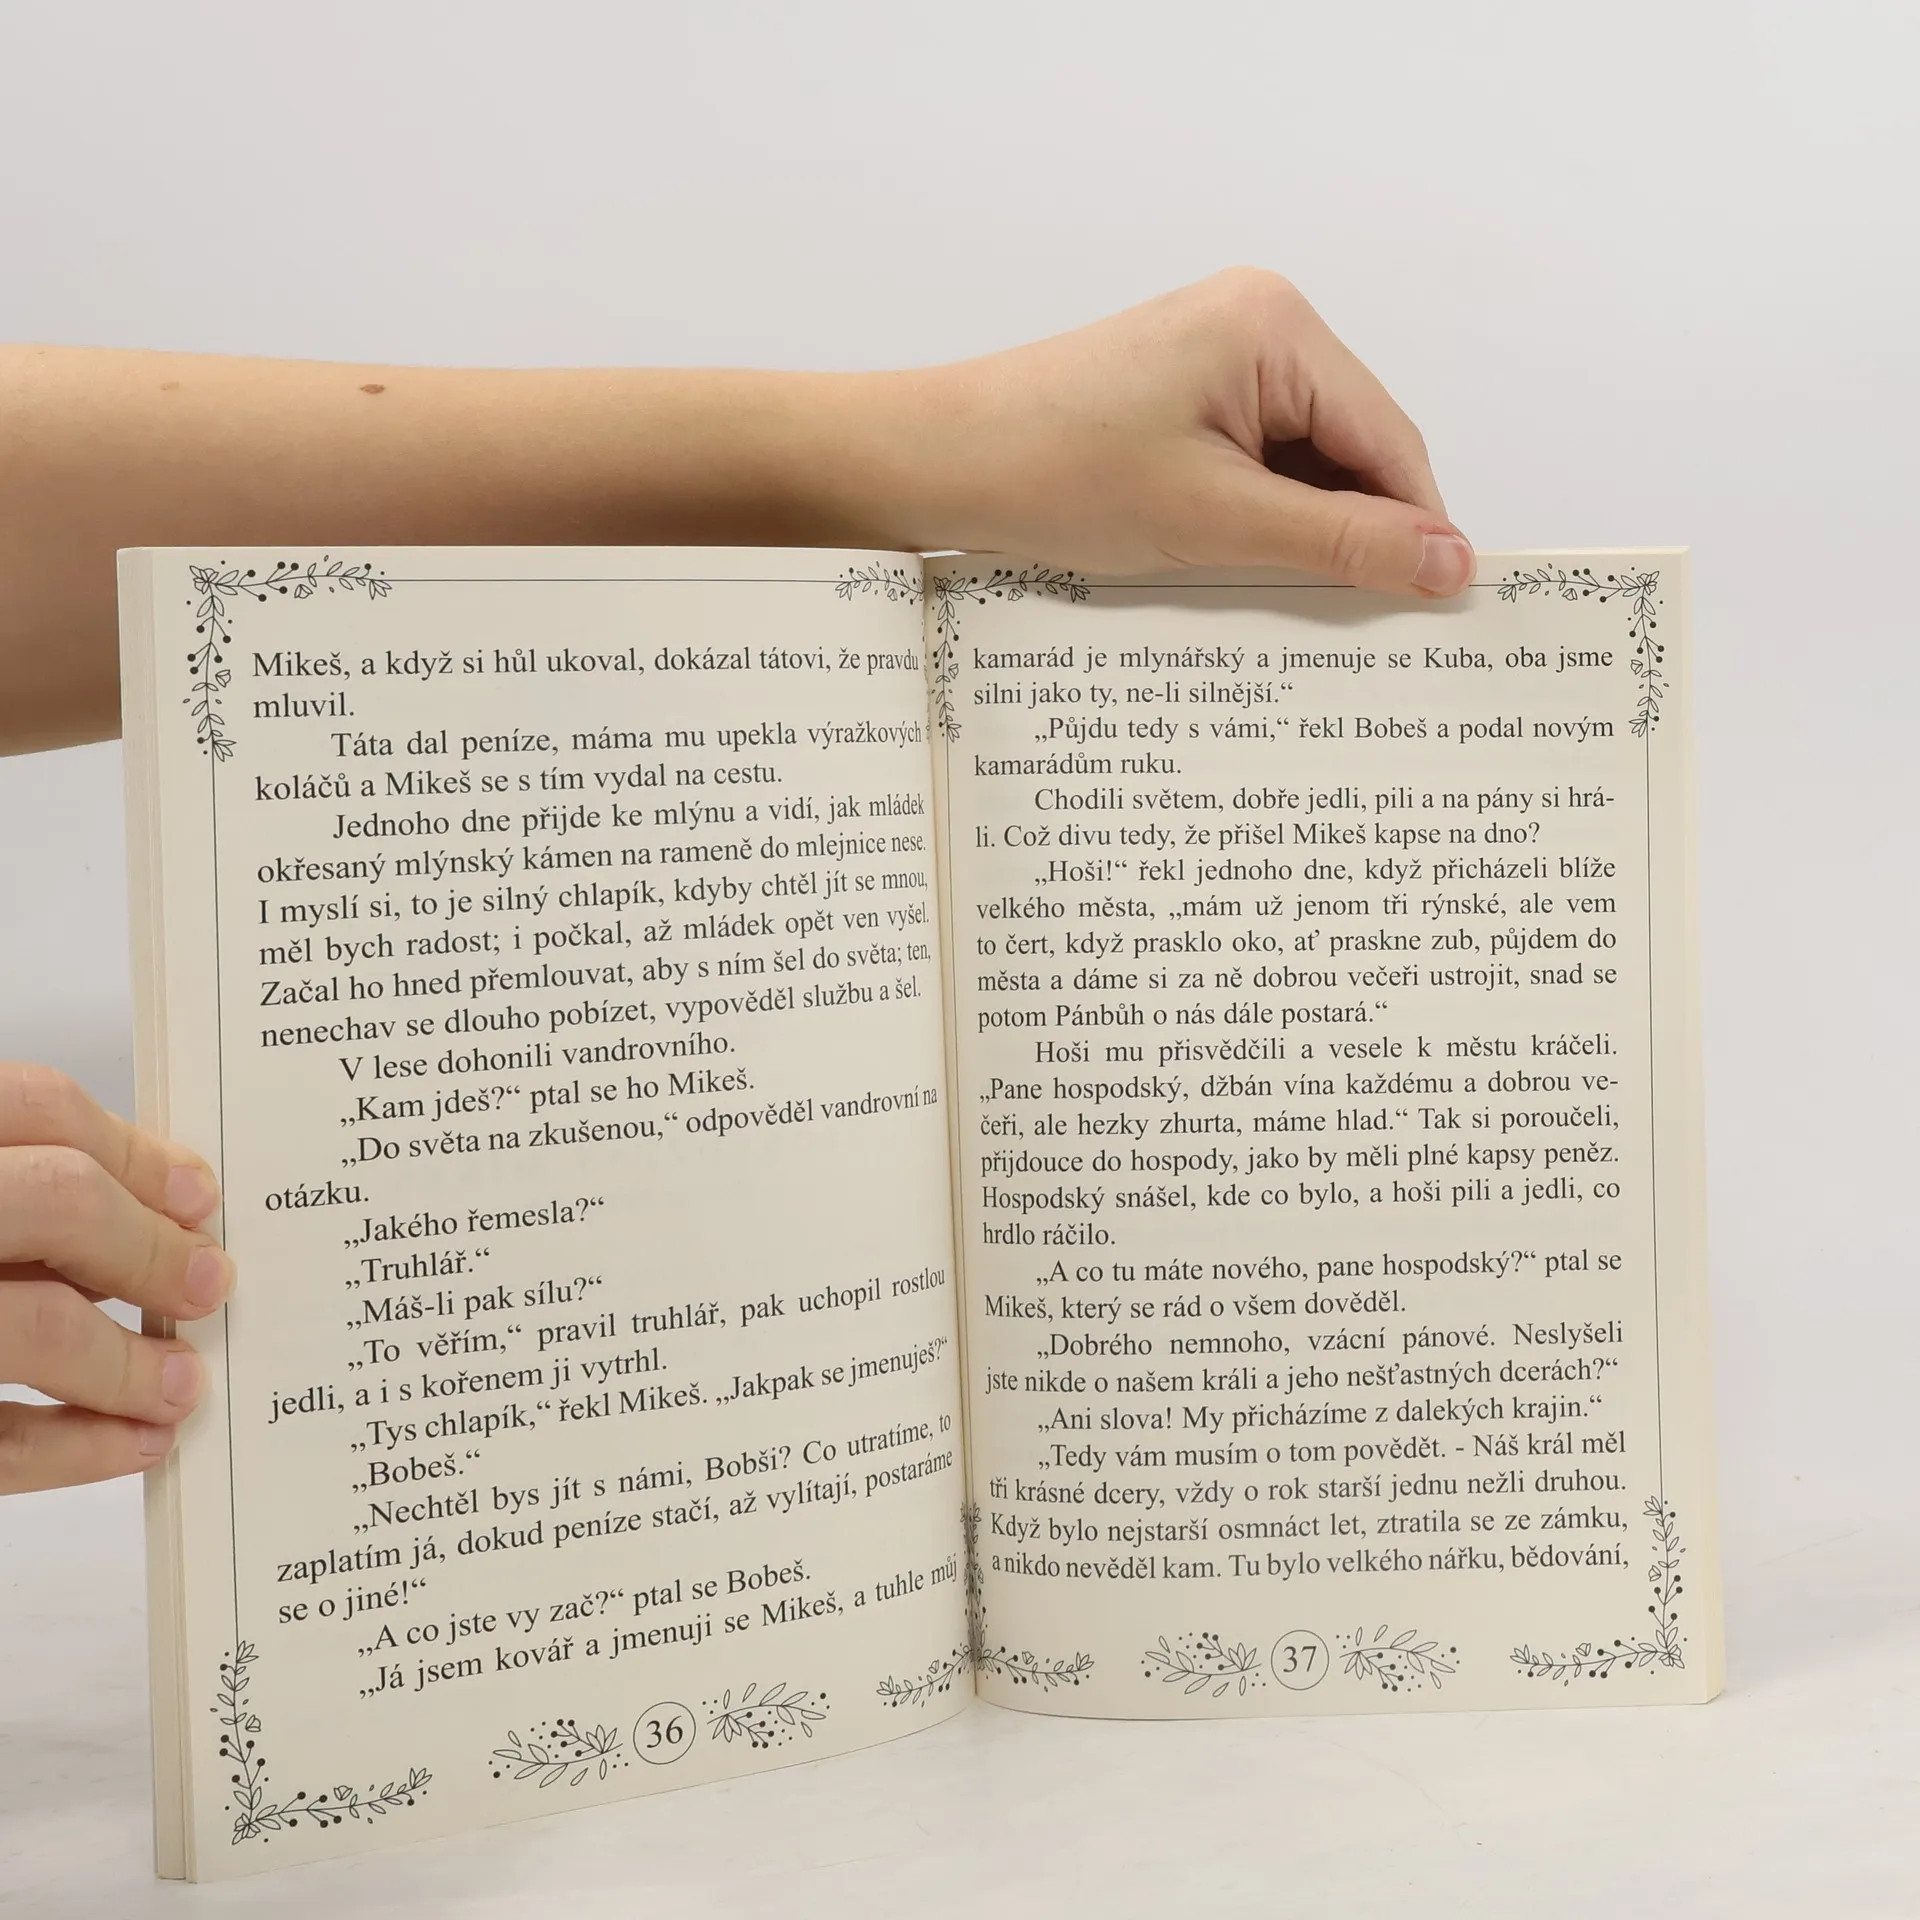 Mikeš, a když si hůl ukoval, dokázal tátovi, že pravdu
mluvil.
Táta dal peníze, máma mu upekla výražkových
koláčů a Mikeš se s tím vydal na cestu.
Jednoho dne přijde ke mlýnu a vidí, jak mládek
okřesaný mlýnský kámen na rameně do mlejnice nese.
I myslí si, to je silný chlapík, kdyby chtěl jít se mnou,
měl bych radost; i počkal, až mládek opět ven vyšel.
Začal ho hned přemlouvat, aby s ním šel do světa; ten,
nenechav se dlouho pobízet, vypověděl službu a šel.
V lese dohonili vandrovního.
„Kam jdeš?“ ptal se ho Mikeš.
„Do světa na zkušenou,“ odpověděl vandrovní na
otázku.
„Jakého řemesla?“
„Truhlář.“
„Máš-li pak sílu?“
„To věřím,“ pravil truhlář, pak uchopil rostlou
jedli, a i s kořenem ji vytrhl.
„Tys chlapík,“ řekl Mikeš. „Jakpak se jmenuješ?“
„Bobeš.“
„Nechtěl bys jít s námi, Bobši? Co utratíme, to
zaplatím já, dokud peníze stačí, až vylítají, postaráme
se o jiné!“
„A co jste vy zač?“ ptal se Bobeš.
„Já jsem kovář a jmenuji se Mikeš, a tuhle můj
36
kamarád je mlynářský a jmenuje se Kuba, oba jsme
silni jako ty, ne-li silnější.“
„Půjdu tedy s vámi,“ řekl Bobeš a podal novým
kamarádům ruku.
Chodili světem, dobře jedli, pili a na pány si hrá-
li. Což divu tedy, že přišel Mikeš kapse na dno?
„Hoši!“ řekl jednoho dne, když přicházeli blíže
velkého města, „mám už jenom tři rýnské, ale vem
to čert, když prasklo oko, ať praskne zub, půjdem do
města a dáme si za ně dobrou večeři ustrojit, snad se
potom Pánbůh o nás dále postará.“
Hoši mu přisvědčili a vesele k městu kráčeli.
„Pane hospodský, džbán vína každému a dobrou ve-
čeři, ale hezky zhurta, máme hlad.“ Tak si poroučeli,
přijdouce do hospody, jako by měli plné kapsy peněz.
Hospodský snášel, kde co bylo, a hoši pili a jedli, co
hrdlo ráčilo.
„A co tu máte nového, pane hospodský?“ ptal se
Mikeš, který se rád o všem dověděl.
„Dobrého nemnoho, vzácní pánové. Neslyšeli
jste nikde o našem králi a jeho nešťastných dcerách?“
„Ani slova! My přicházíme z dalekých krajin.“
„Tedy vám musím o tom povědět. - Náš král měl
tři krásné dcery, vždy o rok starší jednu nežli druhou.
Když bylo nejstarší osmnáct let, ztratila se ze zámku,
a nikdo nevěděl kam. Tu bylo velkého nářku, bědování,
37